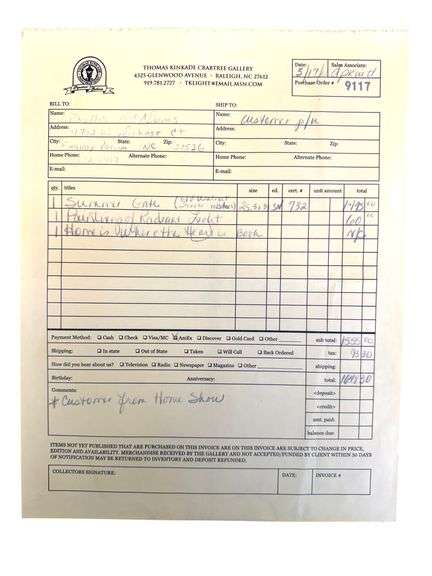 THOMAS KINKADE CRABTREE GALLERY
4325 GLENWOOD AVENUE · RALEIGH, NC 27612
919.781.2727 · TKLIGHT@EMAIL.MSN.COM
Date: 3/17/ Sales Associate: April H
Purchase Order # 9117
BILL TO: SHIP TO:
Name: Name: Customer p/u
Address: Ct Address:
City: State: NC Zip: City: State: Zip:
Home Phone: Alternate Phone: Home Phone: Alternate Phone:
E-mail: E-mail:
qty. titles size ed. cert. # unit amount total
1 Summer Gate SN 732
1 Radiant Light 160
1 Home is Where the Heart is Book N/C
Payment Method: Cash Check Visa/MC AmEx Discover Gold Card Other sub total:
Shipping: In state Out of State Taken Will Call Back Ordered tax:
How did you hear about us? Television Radio Newspaper Magazine Other shipping:
Birthday: Anniversary: total:
Comments: <deposit>
* Customer from Home Show <credit>
amt. paid:
balance due:
ITEMS NOT YET PUBLISHED THAT ARE PURCHASED ON THIS INVOICE ARE SUBJECT TO CHANGE IN PRICE,
EDITION AND AVAILABILITY. MERCHANDISE RECEIVED BY THE GALLERY AND NOT ACCEPTED/FUNDED BY CLIENT WITHIN 30 DAYS
OF NOTIFICATION MAY BE RETURNED TO INVENTORY AND DEPOSIT REFUNDED.
COLLECTORS SIGNATURE: DATE: INVOICE #